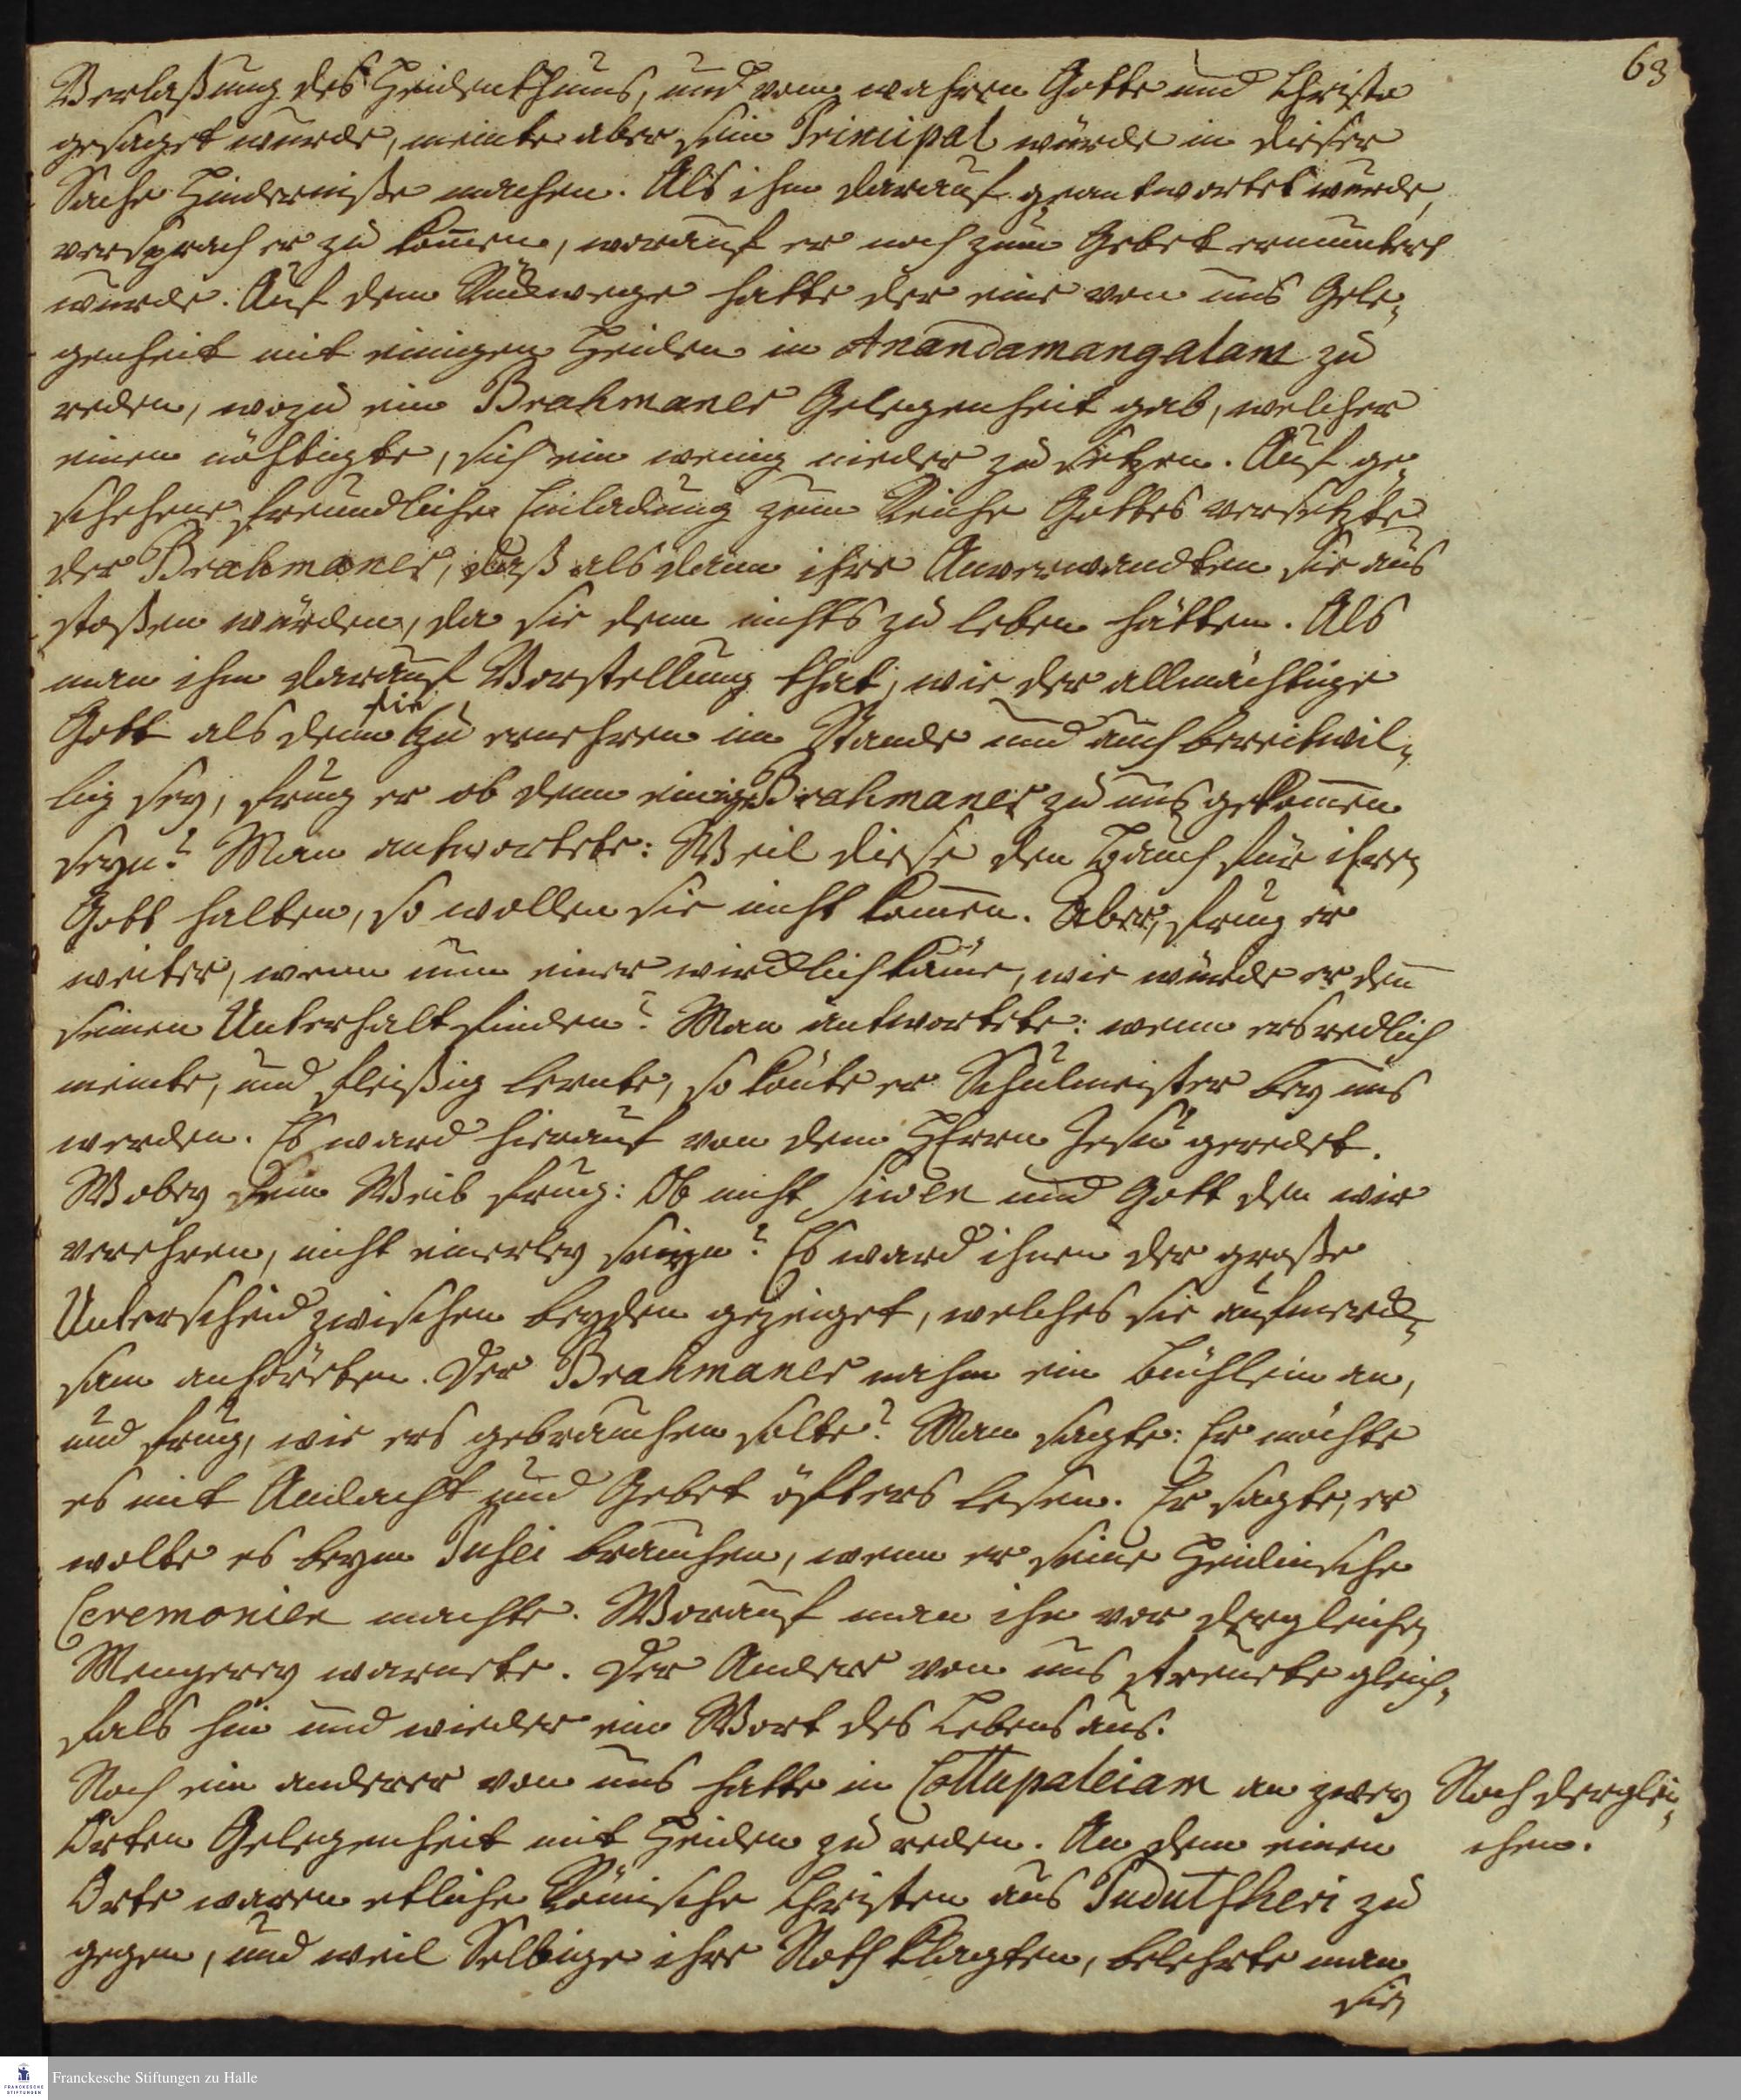 63
Verlaßung des Heidenthums, und vom wahren Gotte und Christo
gesaget wurde, meinte aber sein Principal würde in dieser
Sache Hinderniße machen. Als ihm darauf geantwortet wurde,
versprach er zu kom̄en, worauf er noch zum Gebet ermuntert
wurde. Auf dem Rückwege hatte der eine von uns Gele„
genheit mit einigen Heiden in Anandamangalam zu
reden, wozu ein Brahmaner Gelegenheit gab, welcher
einen nöthigte, sich ein wenig nieder zu setzen. Auf ge„
schehene freundliche Einladung zum Reiche Gottes versetzte
der Brahmaner, daß als dann ihre Anverwandten sie aus
stoßen würden, da sie denn nichts zu leben hätten. Als
man ihm darauf Vorstellung that, wie der allmächtige
Gott als denn sie zu ernehren im Stande und auch bereitwil„
lig sey, frug er ob denn einige Brahmaner zu uns gekom̄en
seyn? Man antwortete: Weil diese den Bauch für ihren
Gott halten, so wollen sie nicht kom̄en. Aber, frug er
weiter, wenn nun einer wircklich käme, wie würde er den̄
seinen Unterhalt finden? Man antwortete: wenn ers redlich
meinte, und fleißig lernte, so kön̄te er Schulmeister bey uns
werden. Es ward hierauf von dem HErrn Jesu geredet.
Wobey sein Weib frug: Ob nicht Siwen und Gott den wir
verehren, nicht einerley seyn? Es ward ihnen der große
Unterscheid zwischen beyden gezeiget, welches sie aufmerck„
sam anhöreten. Der Brahmaner nahm ein Büchlein an,
und frug, wie ers gebrauchen solte? Man sagte: Er möchte
es mit Andacht und Gebet öfters lesen. Er sagte, er
wolte es beym Pusei brauchen, wenn er seine Heidnische
Ceremonien machte. Worauf man ihn vor dergleichen
Mengerey warnete. Der Andere von uns streuete gleich„
fals hin und wieder ein Wort des Lebens aus.
Noch ein anderer von uns hatte in Cottupaleiam an zwey
Noch derglei„
chen.
Orten Gelegenheit mit Heiden zu reden. An dem einen
Orte waren etliche Römische Christen aus Pudutscheri zu
gegen, und weil Selbige ihre Noth klagten, belehrte man
sie,
Franckesche Stiftungen zu Halle